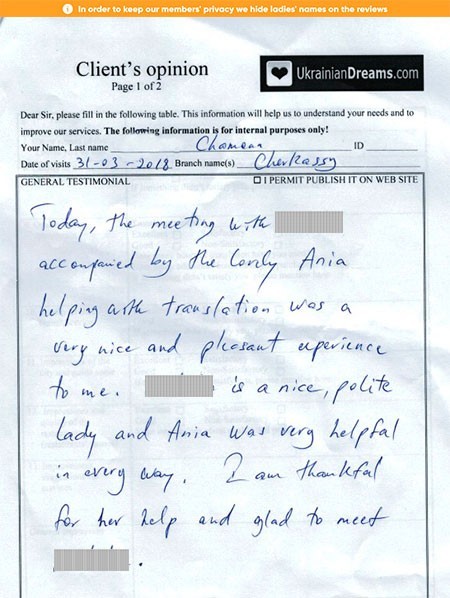 In order to keep our members' privacy we hide ladies' names on the reviews
Client's opinion
Page 1 of 2
UkrainianDreams.com
Dear Sir, please fill in the following table. This information will help us to understand your needs and to
improve our services. The following information is for internal purposes only!
Your Name, Last name ID
Date of visits 31-03-2018 Branch name(s) Cherkassy
GENERAL TESTIMONIAL I PERMIT PUBLISH IT ON WEB SITE
Today, the meeting with
accompanied by the lovely Ania
helping with translation was a
very nice and pleasant experience
to me. is a nice, polite
lady and Ania was very helpful
in every way. I am thankful
for her help and glad to meet
.